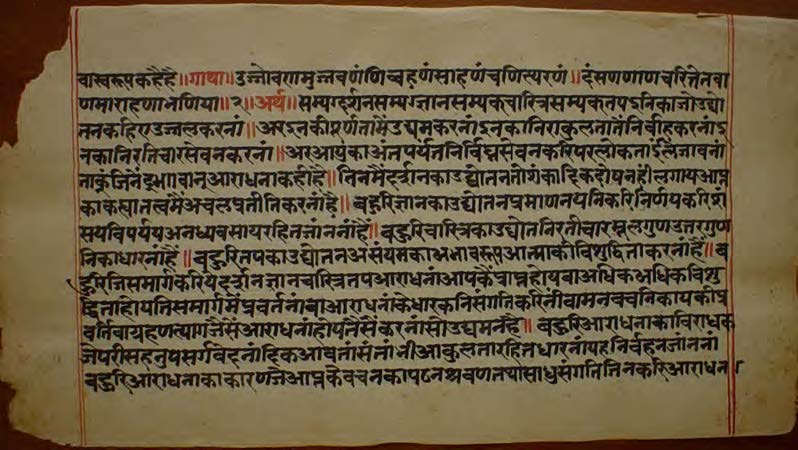 वास्वरूपकहैहै॥गाथा॥उज्जोवणमुज्जवणंणिव्वहणंसाहणंचणित्यरणं॥दंसणणाणचरित्तंतवा
णमाराहणाभणिया॥२॥अर्थ॥सम्यग्दर्शनसम्यग्ज्ञानसम्यकचारित्रसम्यकतपइनिकाजोउद्यो
तनकहिएउज्जलकरनां॥अरइनकीपूर्णतामैंउद्यमकरनांइनकानिराकुलतातैंनिर्वाहकरनांइ
नकानिरतिचारसेवनकरनां॥अरआयुकाअंतपर्यंतनिर्विघ्नसेवनकरिपरलोकतांईलेजावनां
ताकूंजिनेंद्रभगवानआराधनाकहीहै॥तिनमैंदर्शनकाउद्योतनतौशंकादिकदोषनहीलगायआप्त
काकह्यातत्वमैंअचलप्रतीतिकरनांहै॥बहुरिज्ञानकाउद्योतनप्रमाणनयनिकरिनिर्णयकरिसं
सयविपर्ययअनध्यवसायरहितजाननांहै॥बहुरिचारित्रकाउद्योतननिरतीचारमूलगुणउत्तरगुण
निकाधारनांहै॥बहुरितपकाउद्योतनअसंयमकाअभावरूपआत्माकीविशुद्धिताकरनांहै॥ब
हुरिजिसमार्गकरियेदर्शनज्ञानचारित्रतपआराधनांआपकैप्राप्तहोयवाअधिकअधिकविशु
द्धिताहोयतिसमार्गमैंप्रवर्तनांवाआराधनांकेधारकनिसंगतिकरि
वर्तिवाग्रहणत्यागजैसेंआराधनांहोयतैसेंकरनांसोउद्यमनहै॥बहुरिआराधनाकाविराधक
जेपरीसहउपसर्गवेदनांदिकआवतांसंतांभीआकुलतारहितधारनांयहनिर्वहनजाननां
बहुरिआराधनाकाकारणजेआप्तकेवचनकापठनश्रवणतथासाधुसंगतितिनकरिआराधन